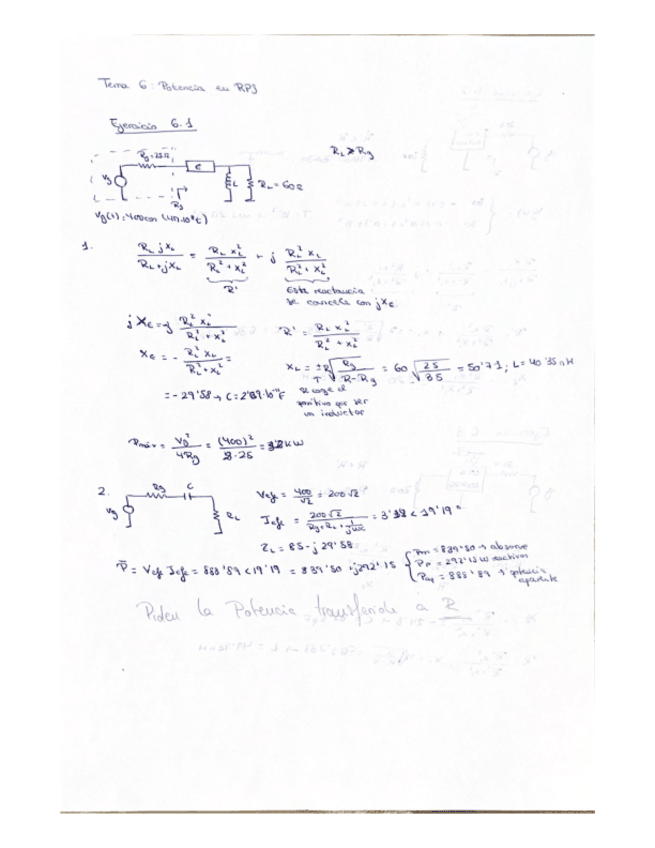 Tema 6: Potencia en RPS
Ejercicio 6.1
Rg=25Ω
C
RL ≥ Rg
Vg
L
RL = 60Ω
Rg
1.
RL jXL / (RL + jXL) = RL XL² / (RL² + XL²) + j RL² XL / (RL² + XL²)
R'
Esta reactancia
se cancela con jXc
jXc = -j RL² XL / (RL² + XL²)
R' = RL XL² / (RL² + XL²)
Xc = - RL² XL / (RL² + XL²) =
XL = ±R √(Rg / (R-Rg)) = 60 √(25/35) = 50'71; L = 40'35 nH
= -29'58 →
Se coge el
positivo por ser
un inductor
Pmáx = Vg² / 4Rg = (400)² / 8·25 =
2.
Rg
C
Vg
RL
Vefc = 400/√2 = 200√2
Iefc = 200√2 / (Rg + RL + 1/jωC) = 3'38 < 19'19°
ZL = 85 - j29'58
= Vefc Iefc = 888'89 < 19'19 = 839'50 + j292'15
Pm = 839'50 → absorbe
Pr = 292'15 W reactiva
Pap = 888'89 → potencia
aparente
Piden la Potencia transferida a R